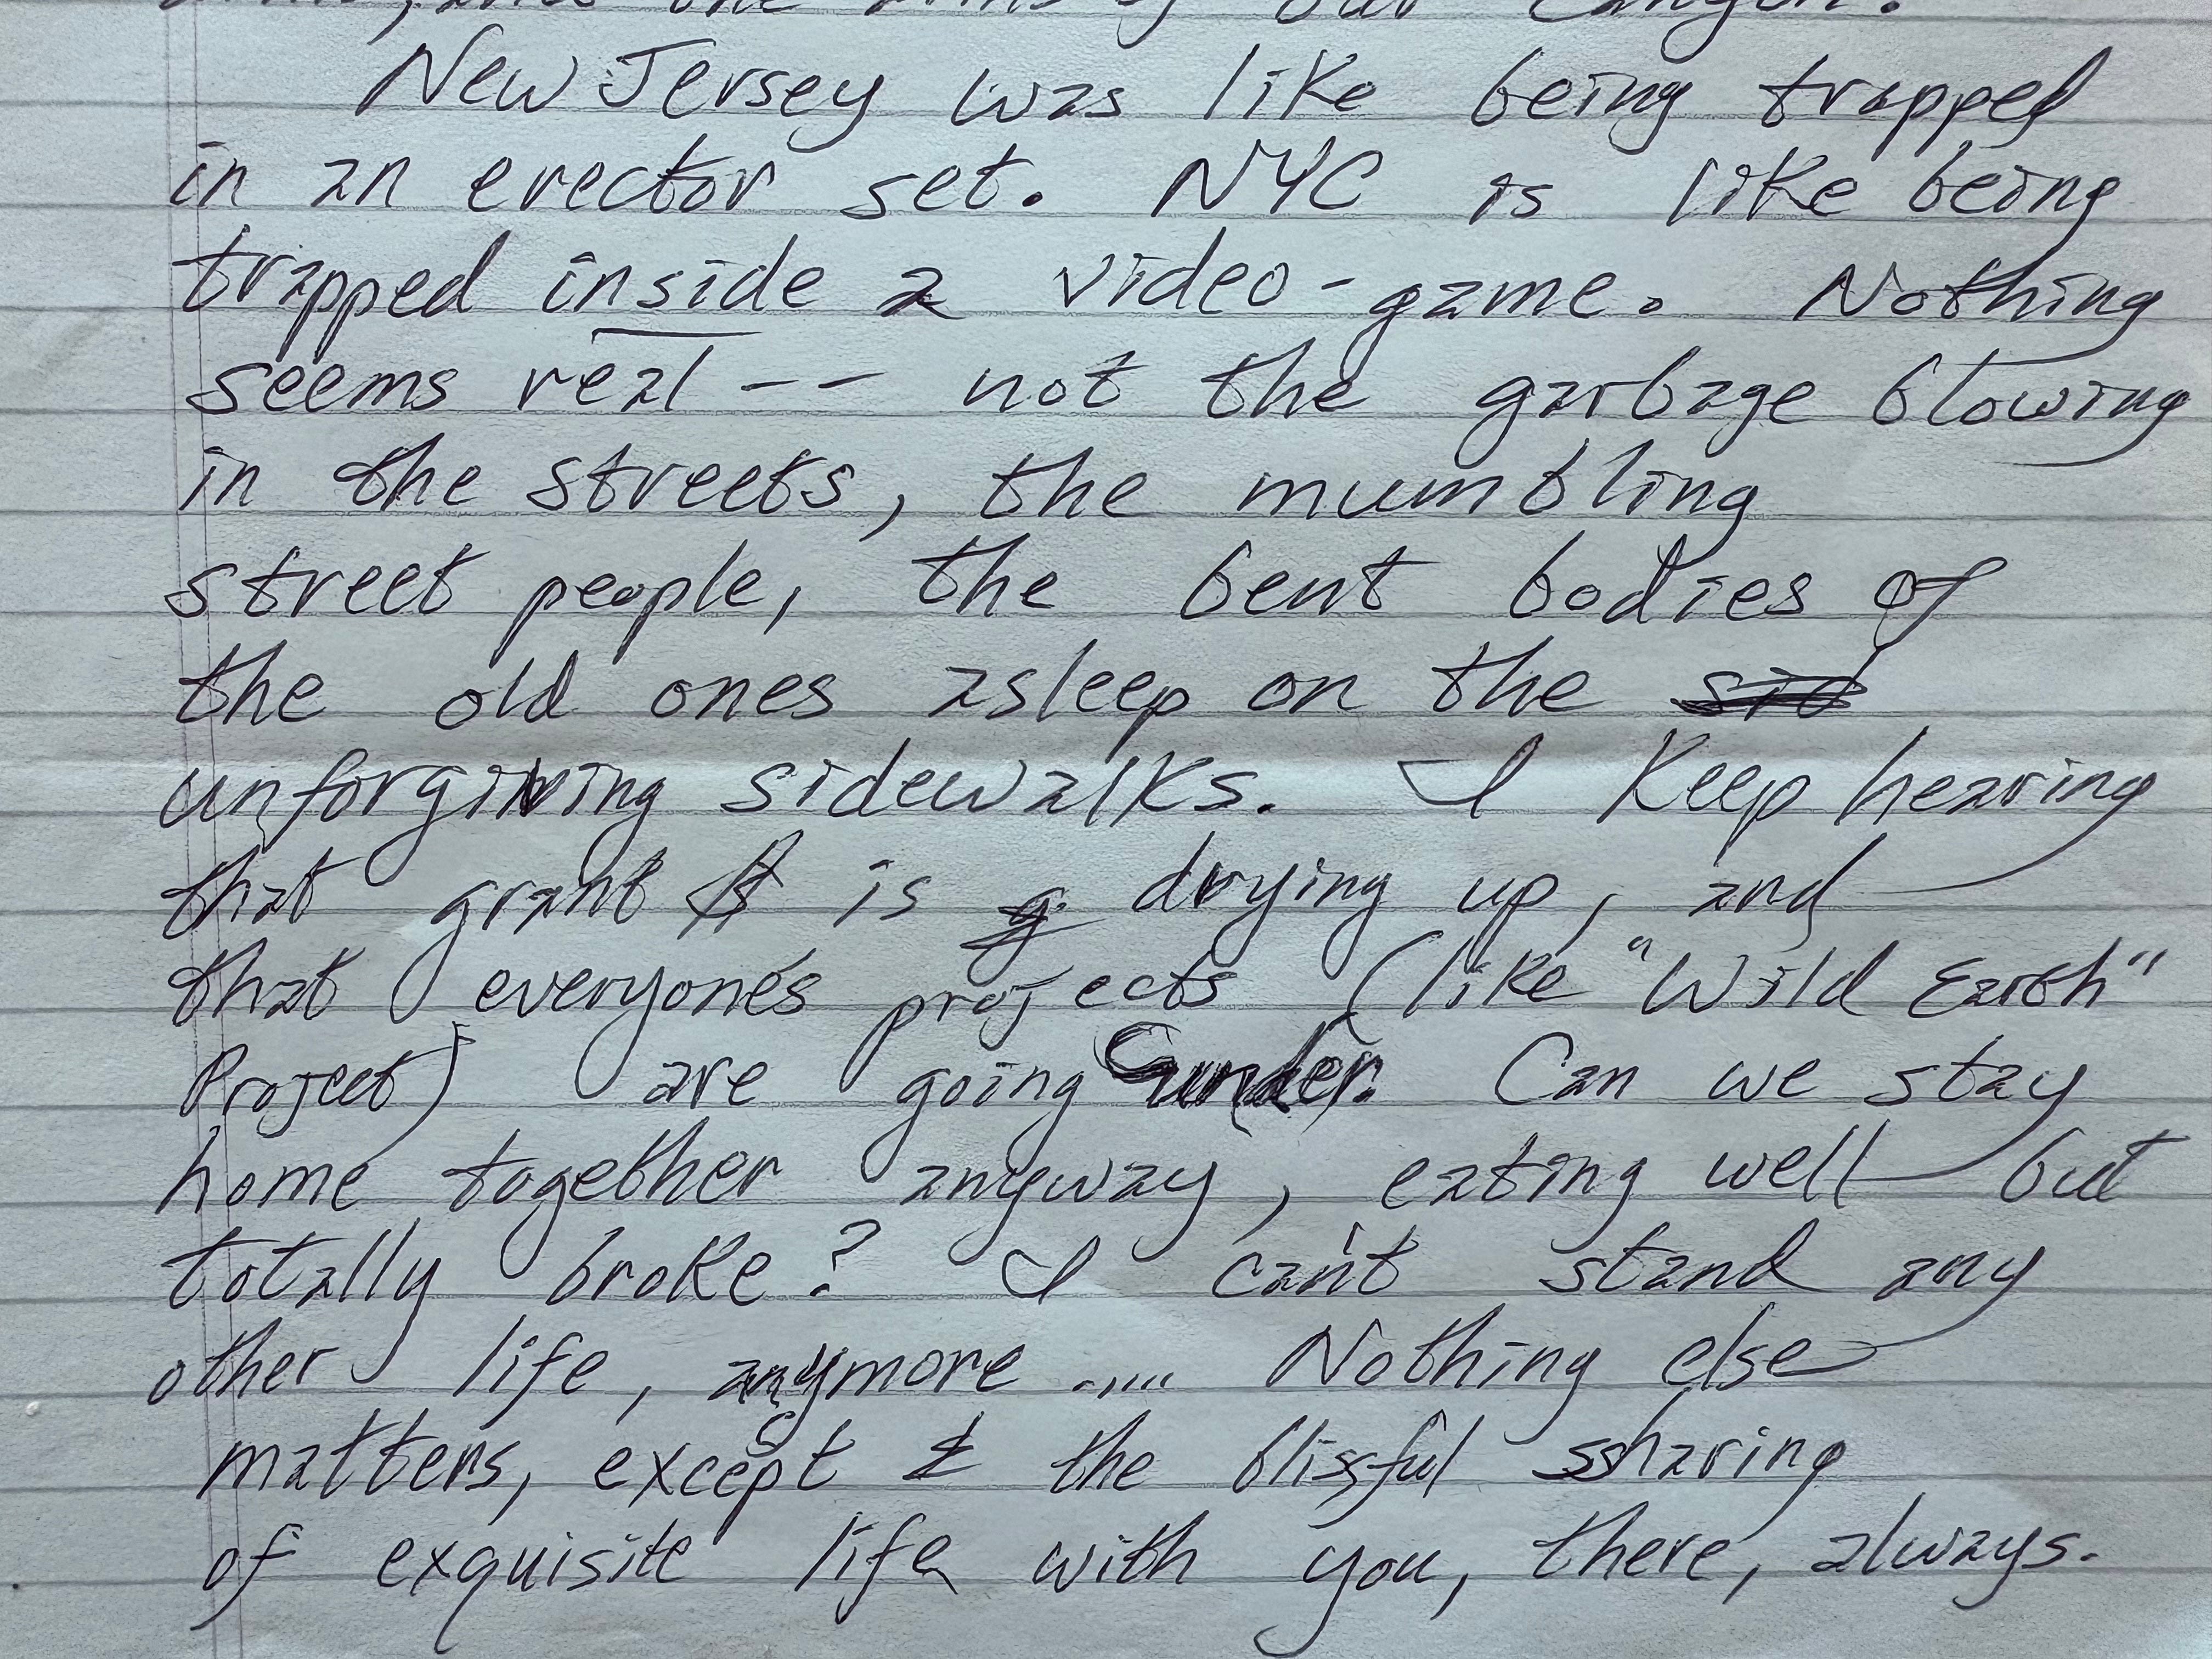 our canyon.
New Jersey was like being trapped
in an erector set. NYC is like being
trapped inside a video-game. Nothing
seems real -- not the garbage blowing
in the streets, the mumbling
street people, the bent bodies of
the old ones asleep on the sid
unforgiving sidewalks. I Keep hearing
that grant $ is g drying up, and
that everyone's projects (like "Wild Earth"
Project) are going under. Can we stay
home together anyway, eating well but
totally broke? I can't stand any
other life, anymore ..... Nothing else
matters, except the blissful sharing
of exquisite life with you, there, always.